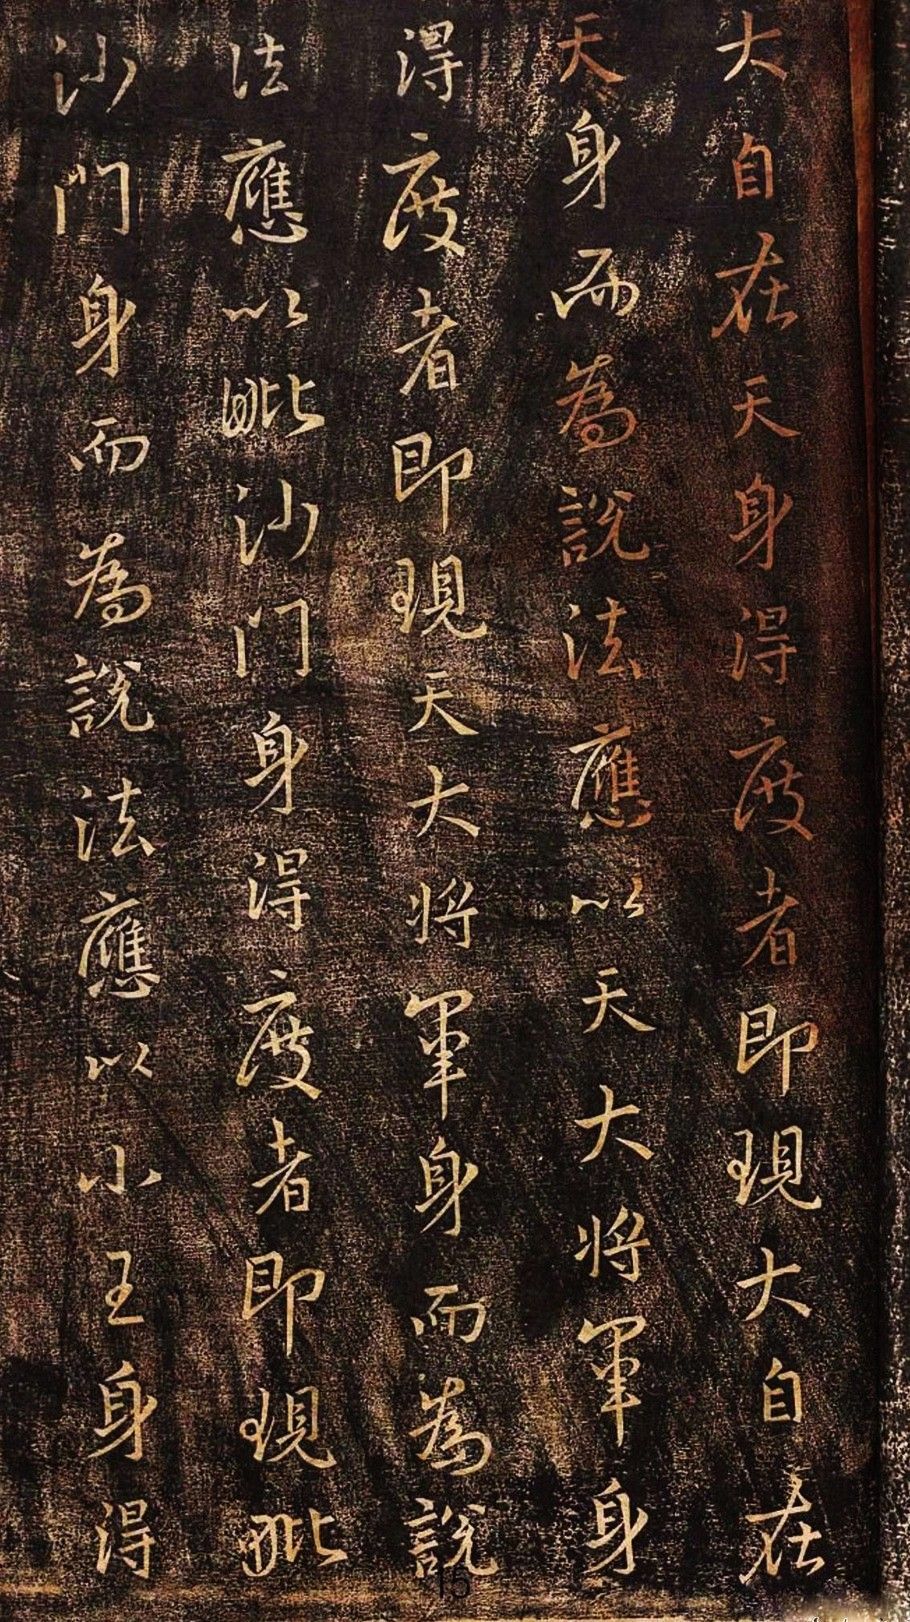 大自在天身得度者即現大自在
天身而為說法應以天大將軍身
得度者即現天大將軍身而為說
法應以毗沙門身得度者即現毗
沙門身而為說法應以小王身得
15